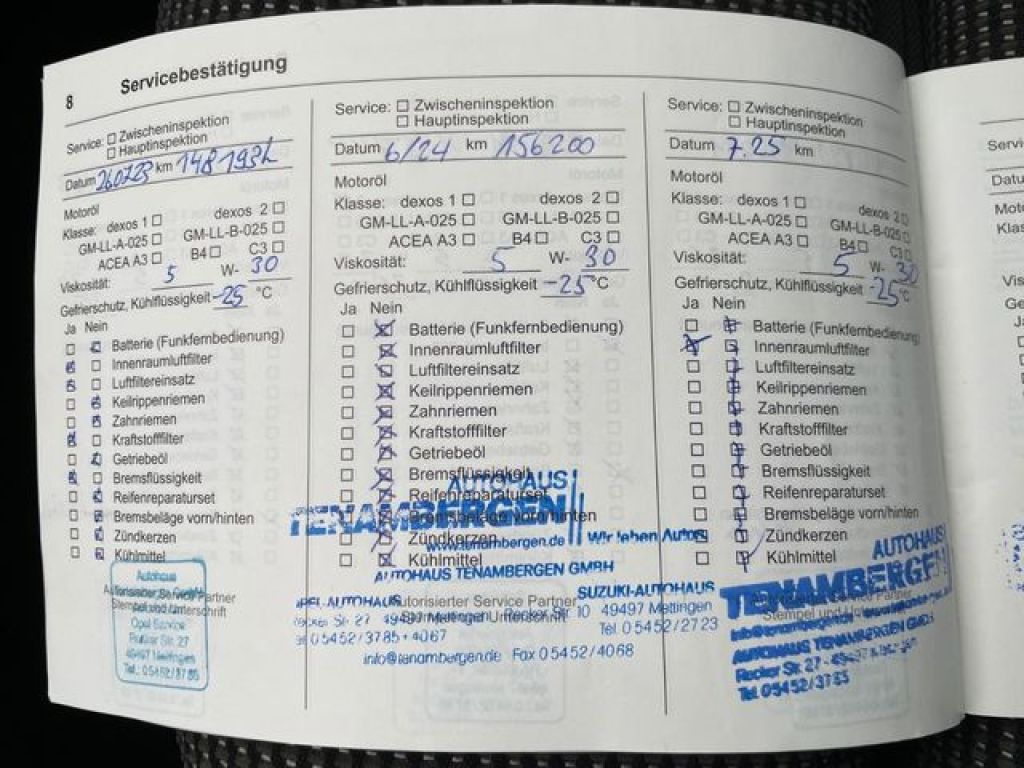 8 Servicebestätigung
Service: ☐ Zwischeninspektion
☐ Hauptinspektion
Datum 260723 km
Motoröl
Klasse: dexos 1 ☐ dexos 2 ☐
GM-LL-A-025 ☐ GM-LL-B-025 ☐
ACEA A3 ☐ B4 ☐ C3 ☐
Viskosität: 5 W- 30
Gefrierschutz, Kühlflüssigkeit -25 °C
Ja Nein
Batterie (Funkfernbedienung)
Innenraumluftfilter
Luftfiltereinsatz
Keilrippenriemen
Zahnriemen
Kraftstofffilter
Getriebeöl
Bremsflüssigkeit
Reifenreparaturset
Bremsbeläge vorn/hinten
Zündkerzen
Kühlmittel
Autohaus
Autorisierter Service Partner
Stempel und Unterschrift
Opel Service
Recker Str. 27
49497 Mettingen
Tel.: 05452/3785
Service: ☐ Zwischeninspektion
☐ Hauptinspektion
Datum 6/24 km 156200
Motoröl
Klasse: dexos 1 ☐ dexos 2 ☐
GM-LL-A-025 ☐ GM-LL-B-025 ☐
ACEA A3 ☐ B4 ☐ C3 ☐
Viskosität: 5 W- 30
Gefrierschutz, Kühlflüssigkeit -25 °C
Ja Nein
Batterie (Funkfernbedienung)
Innenraumluftfilter
Luftfiltereinsatz
Keilrippenriemen
Zahnriemen
Kraftstofffilter
Getriebeöl
Bremsflüssigkeit
Reifenreparaturset
Bremsbeläge vorn/hinten
Zündkerzen
Kühlmittel
AUTOHAUS
TENAMBERGEN
www.tenambergen.de Wir leben Autos
AUTOHAUS TENAMBERGEN GMBH
OPEL-AUTOHAUS SUZUKI-AUTOHAUS
Autorisierter Service Partner
Stempel und Unterschrift
Recker Str. 27 49497 Mettingen Recker Str. 10 49497 Mettingen
05452/3785 + 4067 Tel. 05452/2723
info@tenambergen.de Fax 05452/4068
Service: ☐ Zwischeninspektion
☐ Hauptinspektion
Datum 7.25 km
Motoröl
Klasse: dexos 1 ☐ dexos 2 ☐
GM-LL-A-025 ☐ GM-LL-B-025 ☐
ACEA A3 ☐ B4 ☐ C3 ☐
Viskosität: 5 W- 30
Gefrierschutz, Kühlflüssigkeit -25 °C
Ja Nein
Batterie (Funkfernbedienung)
Innenraumluftfilter
Luftfiltereinsatz
Keilrippenriemen
Zahnriemen
Kraftstofffilter
Getriebeöl
Bremsflüssigkeit
Reifenreparaturset
Bremsbeläge vorn/hinten
Zündkerzen
Kühlmittel
AUTOHAUS
TENAMBERGEN
Service Partner
Stempel und
info@tenambergen.de
AUTOHAUS TENAMBERGEN GMBH
Recker Str. 27 - 49497 Mettingen
Tel. 05452/3785